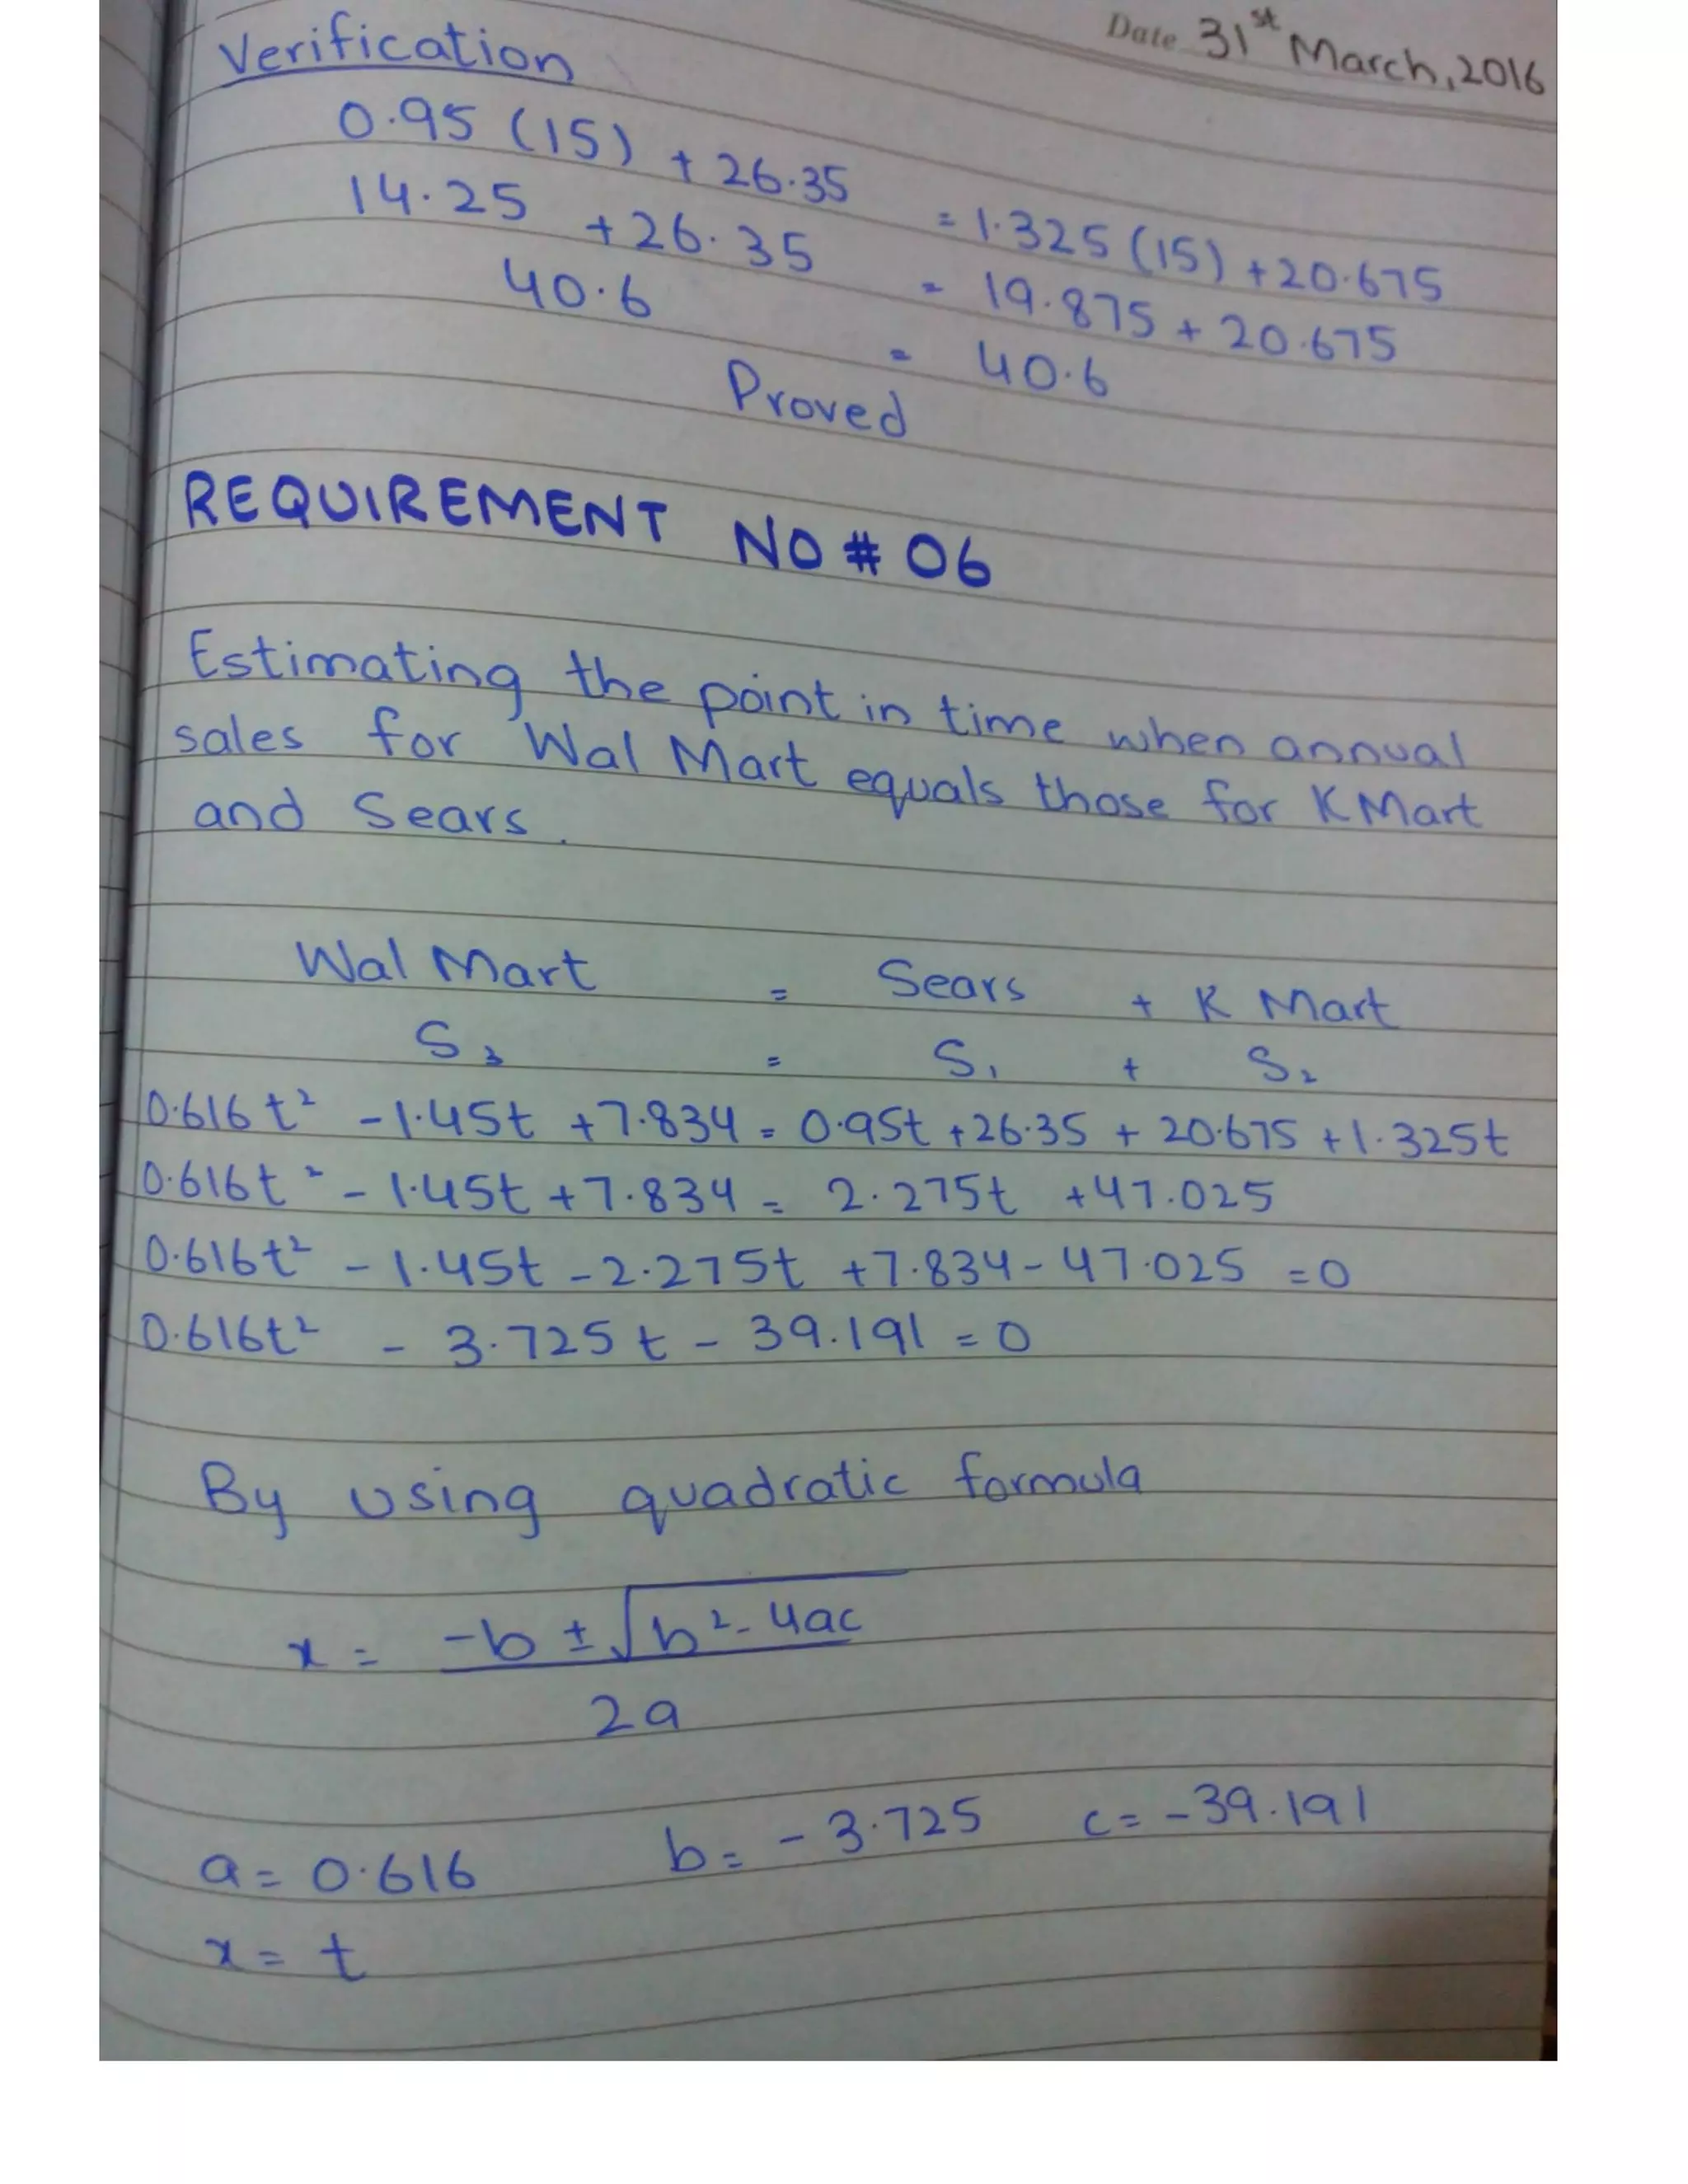 Date 31st March, 2016
Verification
0.95 (15) + 26.35 = 1.325 (15) + 20.675
14.25 + 26.35 = 19.875 + 20.675
40.6 = 40.6
Proved
REQUIREMENT NO # 06
Estimating the point in time when annual
sales for Wal Mart equals those for K Mart
and Sears.
Wal Mart = Sears + K Mart
S₃ = S₁ + S₂
0.616t² - 1.45t + 7.834 = 0.95t + 26.35 + 20.675 + 1.325t
0.616t² - 1.45t + 7.834 = 2.275t + 47.025
0.616t² - 1.45t - 2.275t + 7.834 - 47.025 = 0
0.616t² - 3.725t - 39.191 = 0
By using quadratic formula
x = -b ± √b² - 4ac
2a
a = 0.616 b = -3.725 c = -39.191
x = t